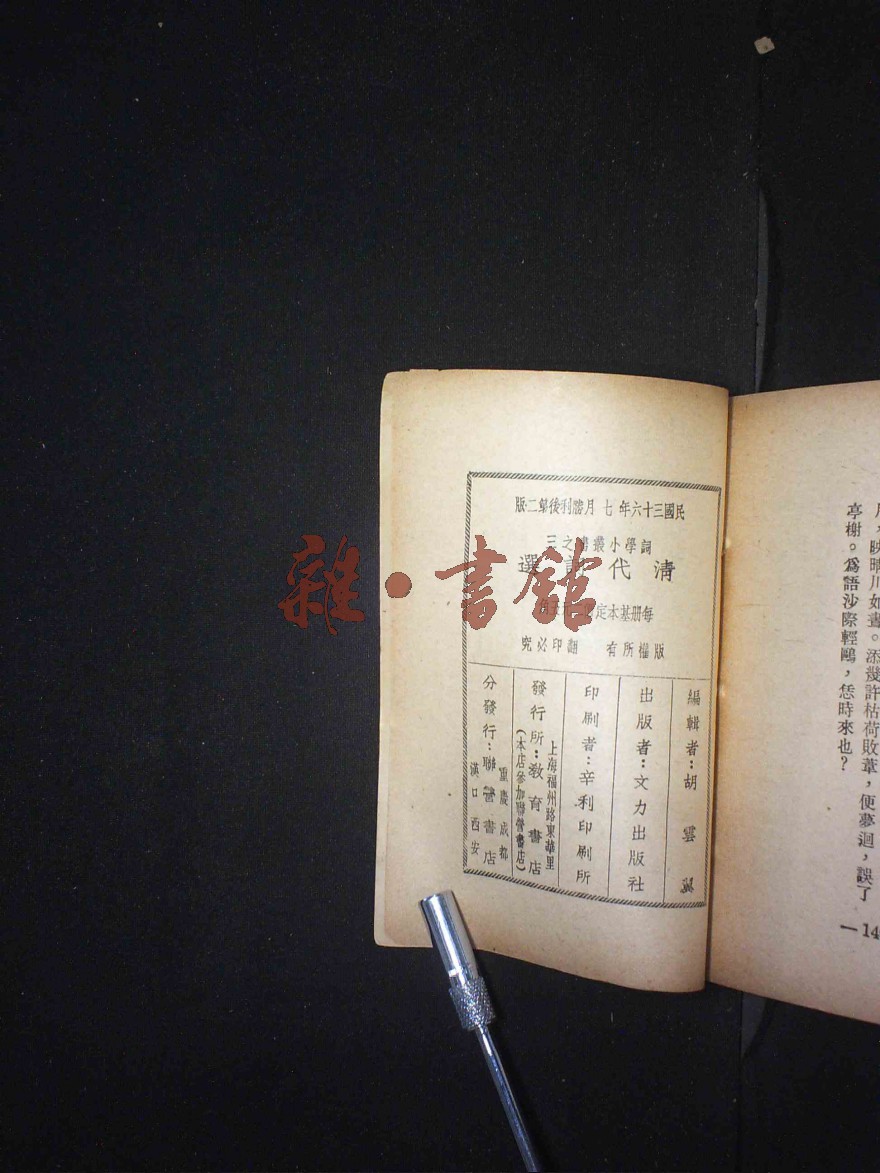 民國三十六年七月勝利後第二版
詞學小叢書之三
清代詞選
每册基本定價
版權所有 翻印必究
編輯者：胡雲翼
出版者：文力出版社
印刷者：辛利印刷所
上海福州路東華里
發行所：教育書店
（本店參加聯營書店）
重慶 成都
分發行：聯營書店
漢口 西安
映晴川如畫。添幾許枯荷敗葦，便夢迴，誤了
亭榭。爲語沙際輕鷗，恁時來也？
雜·書館